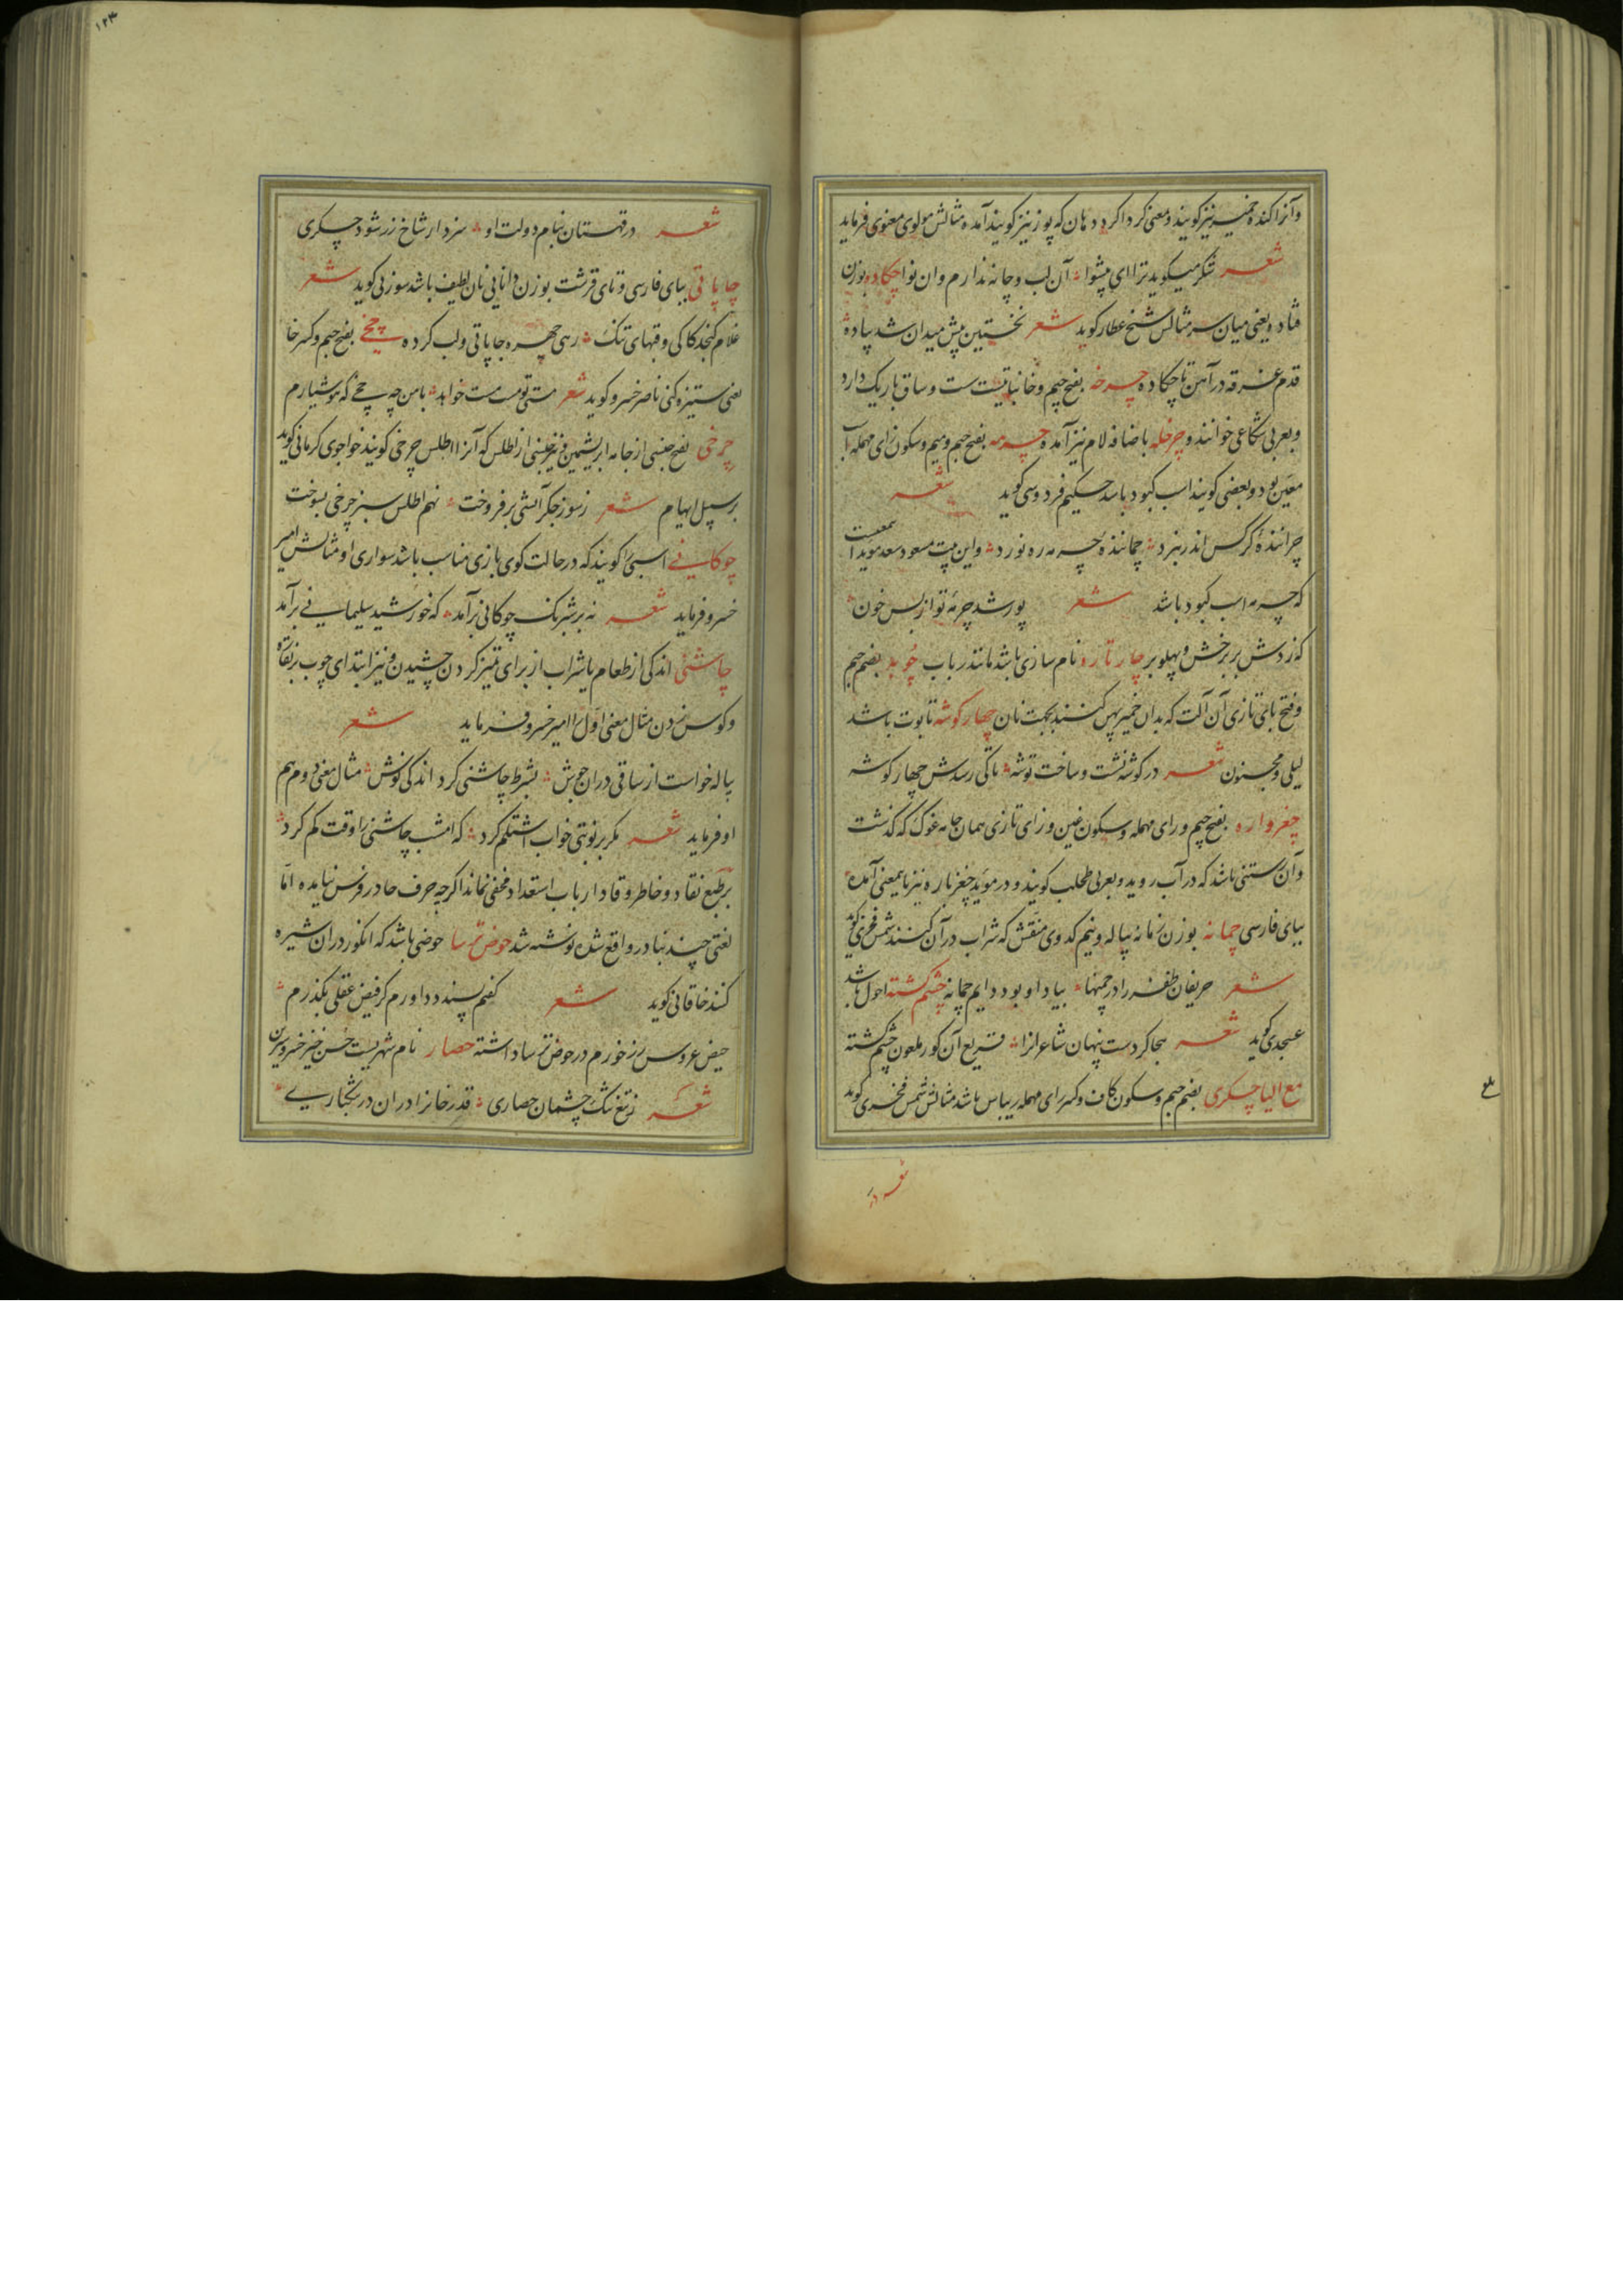 وآنرا کنده خمیر نیز گویند و معنی گرداگرد دهان که پوز نیز گویند آمده مثالش مولوی معنوی فرماید
شعر شکر میگوید ترا ای پیشوا آن لب و چانه ندارم وان نوا چکاده بوزن
فتاده یعنی میان سر مثالش شیخ عطار گوید شعر نخستین پیش میدان شد پیاده
قدم غرقه در آهن تا چکاده چرخه بفتح جیم و خا نباتیست ست و ساق باریک دارد
وبعربی شکاعی خوانند و چرخله باضافه لام نیز آمده چرمه بفتح جیم و میم و سکون رای مهمله اسب
معین بود و بعضی گویند اسب کبود باشد حکیم فردوسی گوید شعر
چرانندهٔ کرگس اندر نبرد چمانندهٔ چرمه ره نورد و این بیت مسعود سعد موید آنمعنیست
که چرمه اسب کبود باشد شعر بور شد چرمهٔ تو از بس خون
که زدش بر برخش و پهلو بر چارتاره نام سازی باشد مانند رباب چوبه بضم جیم
و فتح بای تازی آن آلت که بدان خمیر پهن کنند بجهت نان چهار گوشه تابوت باشد
لیلی و مجنون شعر در گوشه نشست و ساخت توشه تا کی رسدش چهار گوشه
چغرواره بفتح جیم و رای مهمله و سکون غین و زای تازی همان جامه غوک که گذشت
و آن رستنی باشد که در آب روید و بعربی طحلب گویند و در موید چغزباره نیز باینمعنی آمده
ببای فارسی چمانه بوزن زمانه پیاله و نیم کدوی منقش که شراب در آن کنند شمس فخری گوید
شعر حریفان ظفر را در چمنها بیاد او بود دایم چمانه چشم گشته احول باشد
عسجدی گوید شعر هجا کردست پنهان شاعرانرا قریع آن کور ملعون چشم گشته
مع الیا چکری بضم جیم و سکون کاف و کسر رای مهمله ریباس باشد مثالش شمس فخری گوید
شعر در
۱۲۳
شعر در قهستان بنام دولت او سزد ار شاخ زر شود چکری
چاپاتی ببای فارسی و تای قرشت بوزن دانایی نان لطیف باشد سوزنی گوید شعر
غلام کنجد کاکی و قبهای تنک رهی چهره چاپاتی و لب کرده چخی بفتح جیم و کسر خا
یعنی ستیزه کنی ناصر خسرو گوید شعر مستی تو مست مست خواهد با من چه چخی که هوشیارم
چرخی بفتح جنسی از جامه ابریشمین و نیز جنسی از اطلس که آنرا اطلس چرخی گویند خواجوی کرمانی گوید
بر سبیل ایهام شعر ز سوز جگر آتشی برفروخت نهم اطلس سبز چرخی بسوخت
چوکانی اسبی را گویند که در حالت گوی بازی مناسب باشد سواری او مثالش امیر
خسرو فرماید شعر نه بر شبرنگ چوگانی برآمد که خورشید سلیمانی برآمد
چاشنی اندکی از طعام یا شراب از برای تمیز کردن چشیدن و نیز ابتدای چوب بر نقاره
و کوس زدن مثال معنی اول را امیر خسرو فرماید شعر
پیاله خواست از ساقی دران جوش بشرط چاشنی کرد اندکی نوش مثال معنی دوم هم
او فرماید شعر مگر بر نوبتی خواب اشتلم کرد که امشب چاشنی را وقت گم کرد
بر طبع نقاد و خاطر وقاد ارباب استعداد مخفی نماند اگرچه حرف حا در فرس نیامده اما
لغتی چند بنادر واقع شده نوشته شد حوض ترسا حوضی باشد که انگور دران شیره
کنند خاقانی گوید شعر گفتم پسندد داورم کز فیض عقلی بگذرم
حیض عروس رز خورم در حوض ترسا داشته حصار نام شهریست حسن خیز خسرو شیرین
شعر ز تنغ تنگ چشمان حصاری قدر خانرا دران در تنگباری